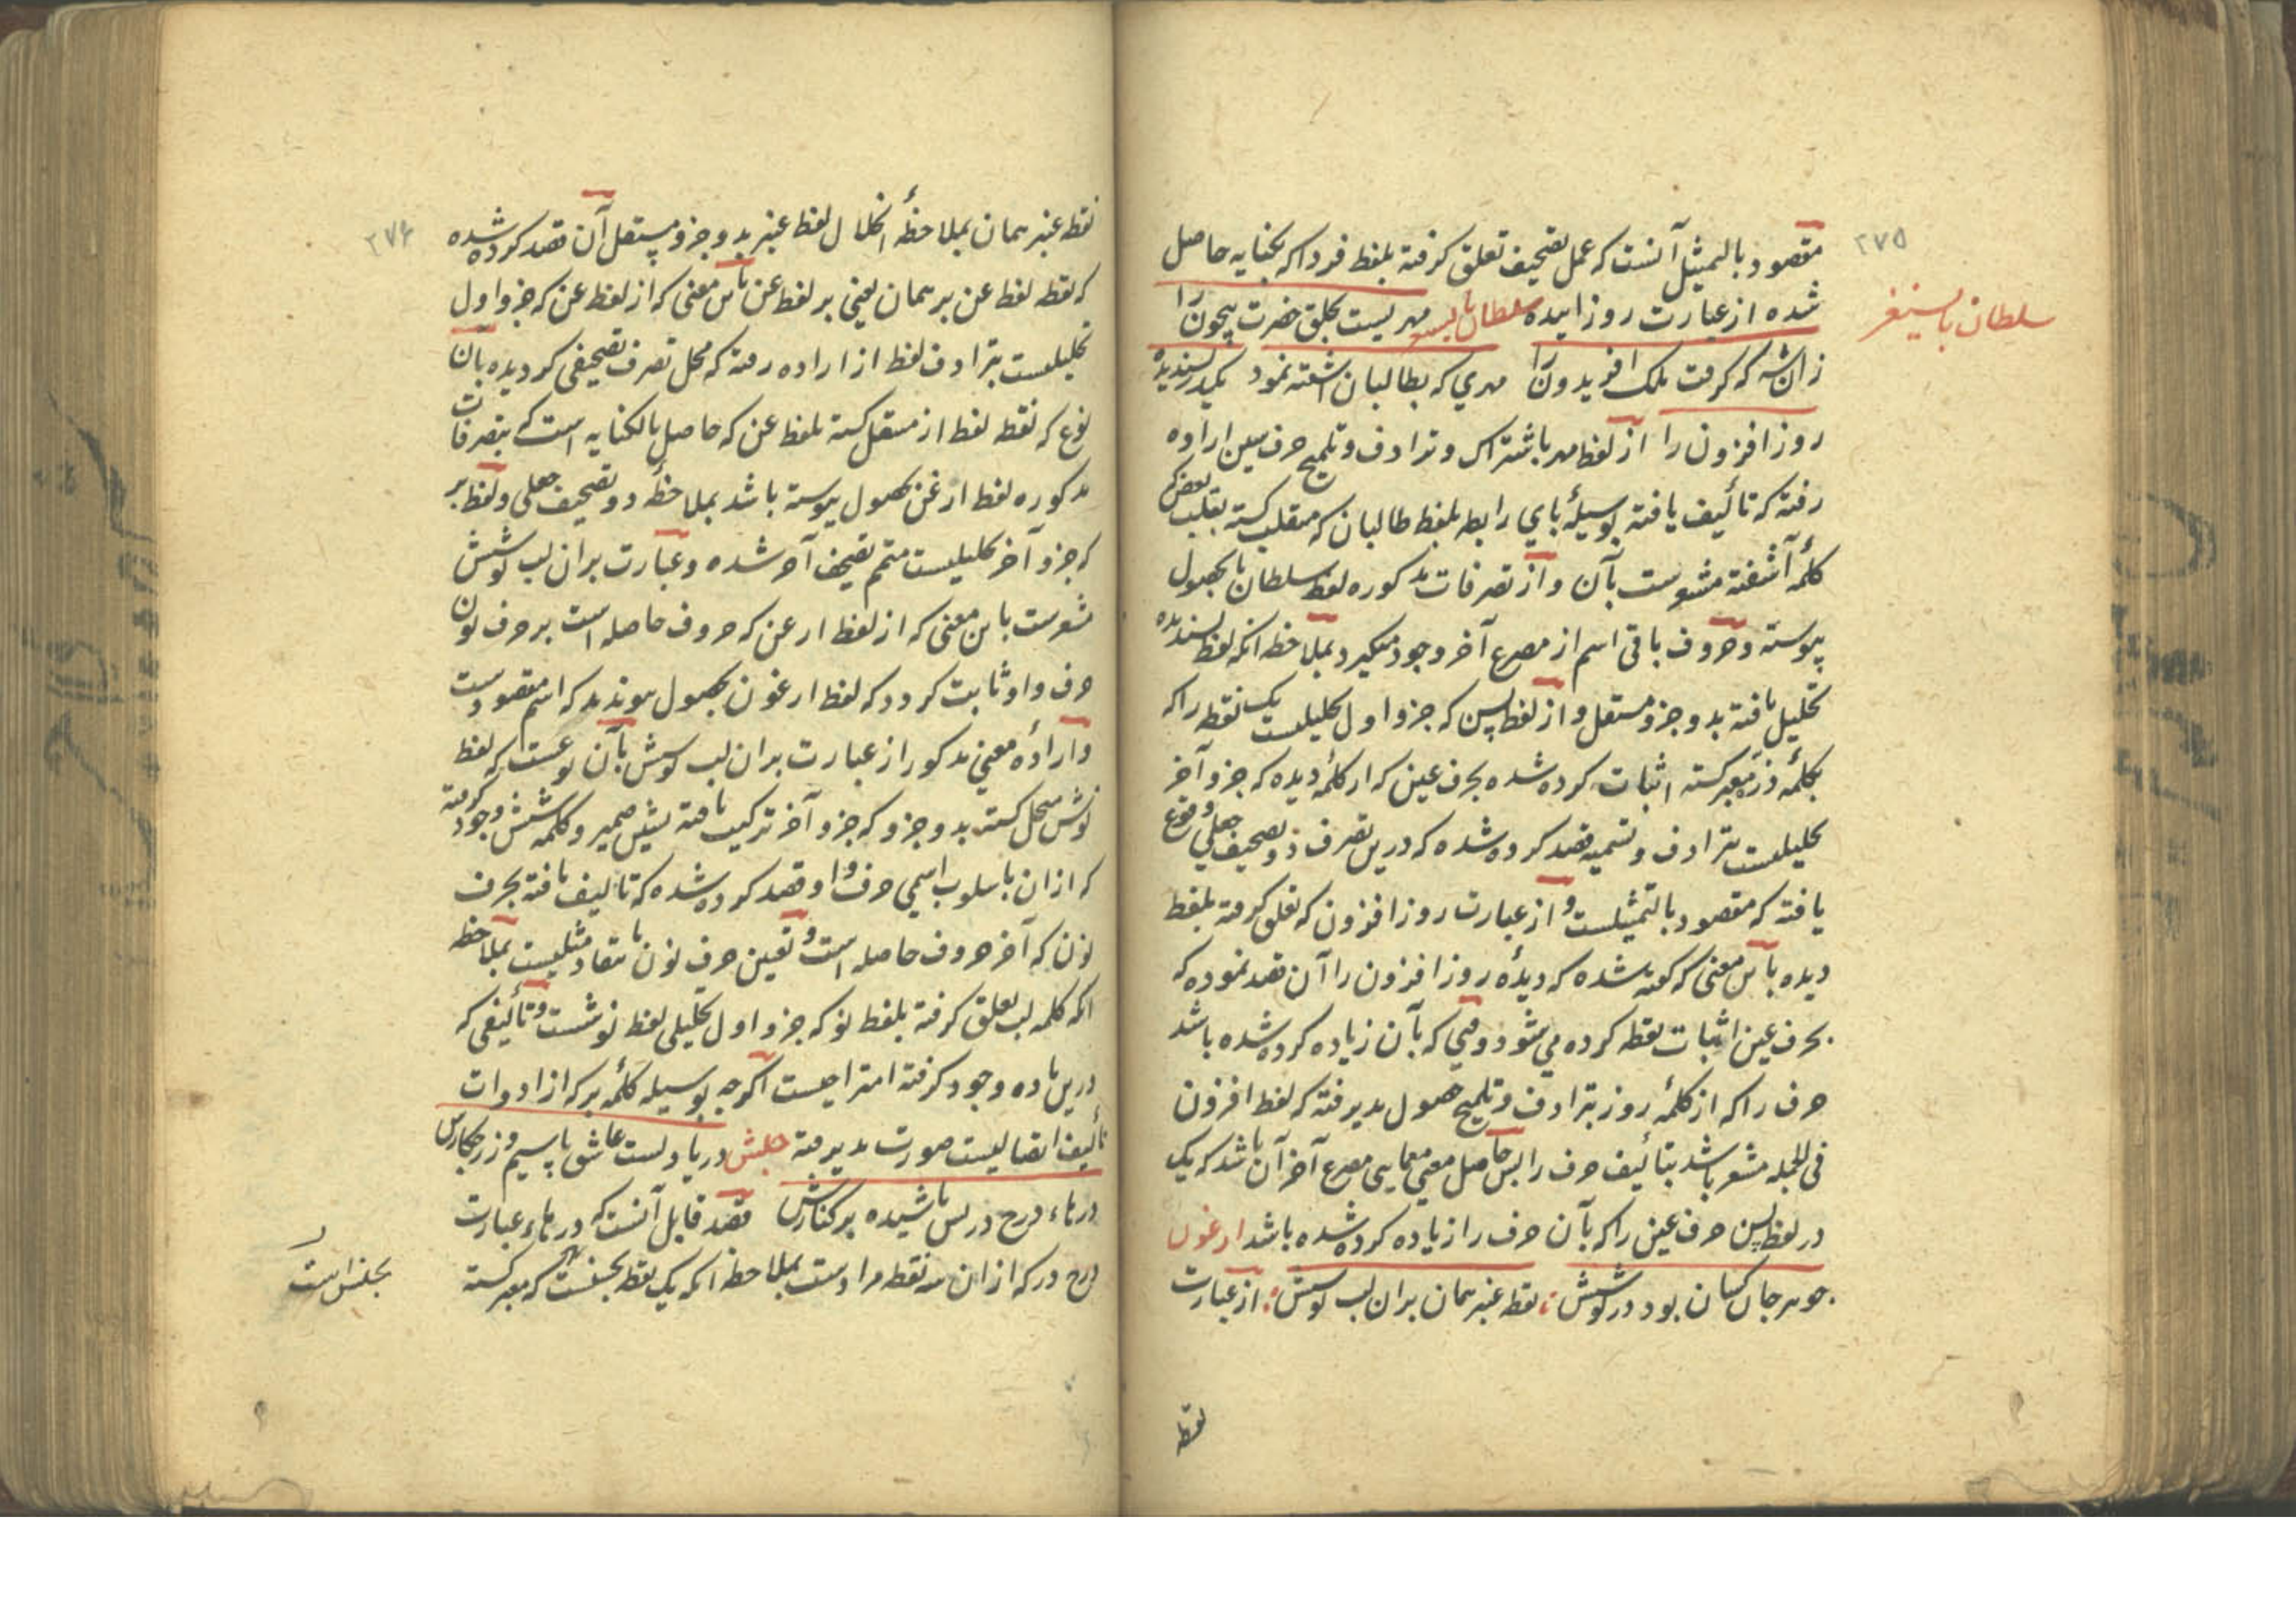 ۲۷۵
مقصود بالتمثیل آنست که عمل تصحیف تعلق کرفته بلفظ فردا که بکنایه حاصل
شده از عبارت روز آینده سلطان بایسنغر مهریست بخلق حضرت بیچون را
سلطان بایسنغر
زان شه که کرفت ملک افریدون را مهری که بطالبان آشفته نمود یکذره پسندیده
روز افزون را از لفظ مهر باشتراک و ترادف و تلمیح حرف سین اراده
رفته که تألیف یافته بوسیلهٔ بای رابطه بلفظ طالبان که منقلب کشته بقلب بعض که
کلمهٔ آشفته مشعرست بآن و از تصرفات مذکوره لفظ سلطان با بحصول
پیوسته و حروف باقی اسم از مصرع آخر وجود میکیرد بملاحظه آنکه لفظ پسندیده
تحلیل یافته بدو جزو مستقل و از لفظ پسن که جزو اول تحلیلیست یک نقطه را که
بکلمهٔ ذره معبر کشته اثبات کرده شده بحرف عین که از کلمهٔ دیده که جزو آخر
تحلیلیست بترادف و تسمیه قصد کرده شده که درین تصرف ذو تصحیف جعلی وقوع
یافته که مقصود بالتمثیلست و از عبارت روز افزون که تعلق کرفته بلفظ
دیده باین معنی که کفته شده که دیدهٔ روز افزون را آن قصد نموده که
بحرف عین اثبات نقطه کرده می شود وقتی که بآن زیاده کرده شده باشد
حرف را که از کلمهٔ روز بترادف و تلمیح حصول پذیرفته که لفظ افزون
فی الجمله مشعر باشد بتألیف حرف را پس حاصل معنی معمایی مصرع آخر آن باشد که یک
در لفظ پسن حرف عین را که بآن حرف را زیاده کرده شده باشد ارغون
جوهر جان کسان بود در کوشش نقطه عنبر همان بران لب نوشش از عبارت
نقطه
۲۷۶
نقطه عنبر همان بملاحظهٔ انحلال لفظ عنبر بدو جزو مستقل آن قصد کرده شده
که نقطه لفظ عن بر همان یعنی بر لفظ عن باین معنی که از لفظ عن که جزو اول
تحلیلیست بترادف لفظ از اراده رفته که محل تصرف تصحیفی کردیده بآن
نوع که نقطه لفظ از منتقل کشته بلفظ عن که حاصل بالکنایه است که بتصرفات
مذکوره لفظ ارغن بحصول پیوسته باشد بملاحظهٔ دو تصحیف جعلی و لفظ بر
که جزو آخر تحلیلیست متمم تصحیف آخر شده و عبارت بران لب نوشش
مشعرست باین معنی که از لفظ ارغن که حروف حاصله است بر حرف نون
حرف واو ثابت کردد که لفظ ارغون بحصول پیوندد که اسم مقصودست
و ارادهٔ معنی مذکور از عبارت بران لب نوشش بآن نوعست که لفظ
نوشش منحل کشته بدو جزو که جزو آخر ترکیب یافته بشین ضمیر و کلمه شش وجود کرفته
که ازان باسلوب اسمی حرف واو قصد کرده شده که تالیف یافته بحرف
نون که آخر حروف حاصله است و تعین حرف نون مستفاد مثلیست بملاحظه
آنکه کلمه لب تعلق کرفته بلفظ نو که جزو اول تحلیلی لفظ نوشست و تألیفی که
درین ماده وجود کرفته امتزاجیست اکرچه بوسیله کلمهٔ بر که از ادوات
تألیف اتصالیست صورت پذیرفته
در یاد لست عاشق با سیم و زر
قصد قابل آنست که درهاء عبارت
درج در که ازان سه نقطه مرادست بملاحظه آنکه یک نقطه
که معبر کشته